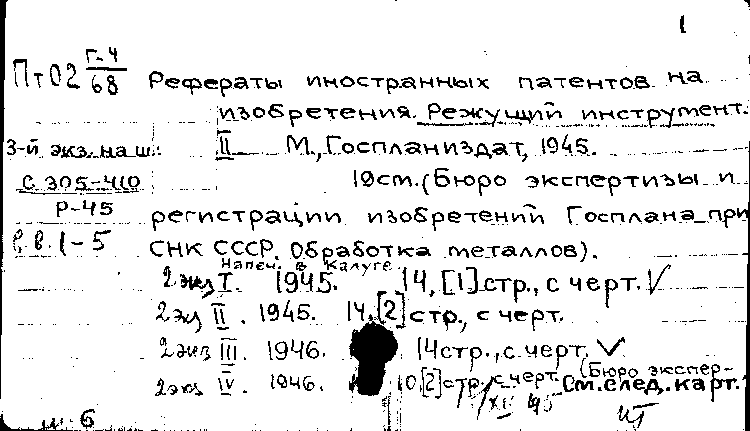 1
Пт02 Г-4/68 Рефераты иностранных патентов на
изобретения. Режущий инструмент.
3-й экз. на ш. II М., Госпланиздат, 1945.
С 305-410 19см. (Бюро экспертизы и
Р-45 регистрации изобретений Госплана при
в.в. 1-5 СНК СССР. Обработка металлов).
Напеч. в Калуге
2 экз I. 1945. 14, [1] стр., с черт. √
2 экз II. 1945. 14, [2] стр., с черт.
2 экз III. 1946. 14 стр., с черт. √
(Бюро экспер-
2 экз IV. 1946. [2] стр., с черт. См. след. карт.
ш. 6